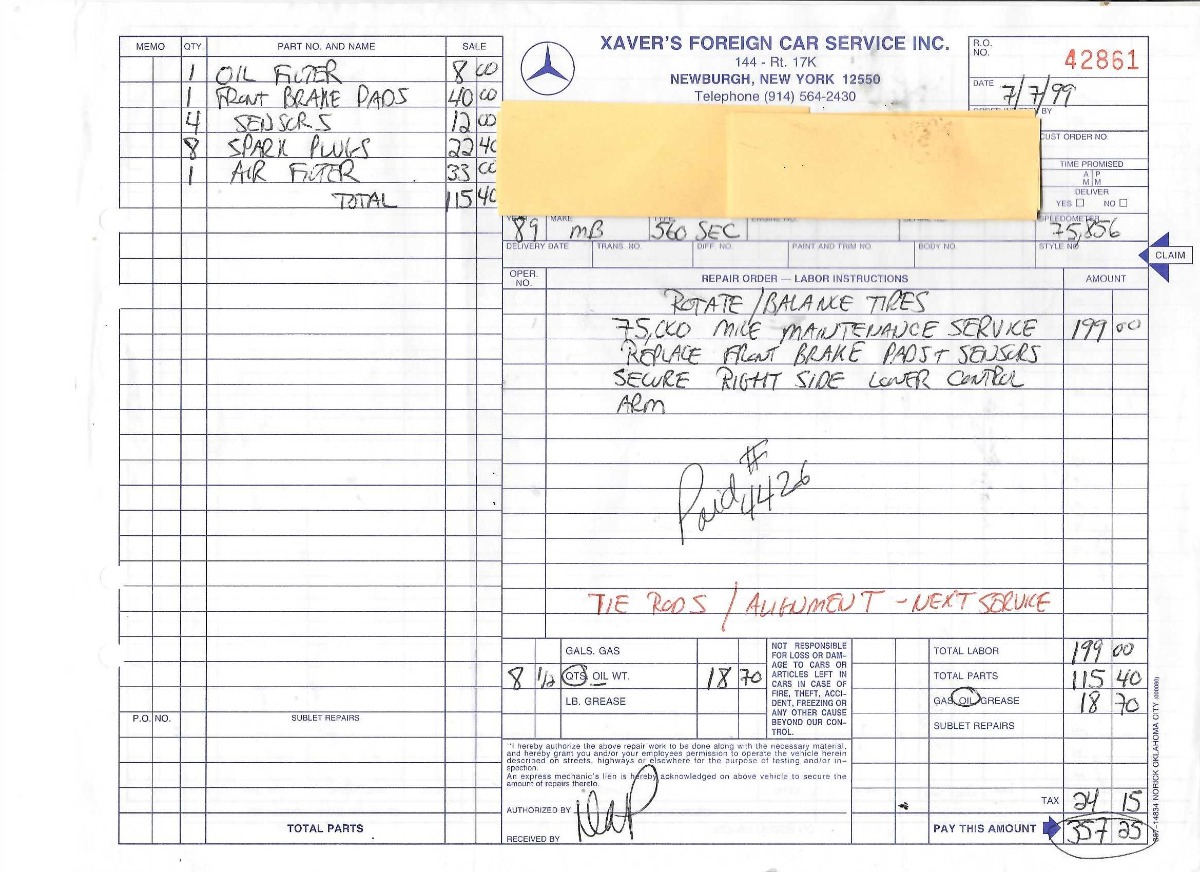 XAVER'S FOREIGN CAR SERVICE INC.
144 - Rt. 17K
NEWBURGH, NEW YORK 12550
Telephone (914) 564-2430
R.O. NO. 42861
DATE 7/7/99
BY
CUST ORDER NO.
TIME PROMISED
A M P M
DELIVER
YES NO
MEMO QTY. PART NO. AND NAME SALE
1 OIL FILTER 8 00
1 FRONT BRAKE PADS 40 00
4 SENSORS 12 00
8 SPARK PLUGS 22 40
1 AIR FILTER 33 00
TOTAL 115 40
P.O. NO. SUBLET REPAIRS
TOTAL PARTS
YEAR MAKE TYPE ENGINE NO. SERIAL NO. SPEEDOMETER
89 MB 560 SEC 75,856
DELIVERY DATE TRANS. NO. DIFF. NO. PAINT AND TRIM NO. BODY NO. STYLE NO.
CLAIM
OPER. NO. REPAIR ORDER — LABOR INSTRUCTIONS AMOUNT
ROTATE/BALANCE TIRES
75,000 MILE MAINTENANCE SERVICE 199 00
REPLACE FRONT BRAKE PADS + SENSORS
SECURE RIGHT SIDE LOWER CONTROL
ARM
Paid # 4426
TIE RODS / ALIGNMENT - NEXT SERVICE
GALS. GAS
8 1/2 QTS. OIL WT. 18 70
LB. GREASE
NOT RESPONSIBLE
FOR LOSS OR DAM-
AGE TO CARS OR
ARTICLES LEFT IN
CARS IN CASE OF
FIRE, THEFT, ACCI-
DENT, FREEZING OR
ANY OTHER CAUSE
BEYOND OUR CON-
TROL.
TOTAL LABOR 199 00
TOTAL PARTS 115 40
GAS OIL GREASE 18 70
SUBLET REPAIRS
TAX 24 15
PAY THIS AMOUNT 357 25
"I hereby authorize the above repair work to be done along with the necessary material,
and hereby grant you and/or your employees permission to operate the vehicle herein
described on streets, highways or elsewhere for the purpose of testing and/or in-
spection.
An express mechanic's lien is hereby acknowledged on above vehicle to secure the
amount of repairs thereto.
AUTHORIZED BY
RECEIVED BY
NORICK OKLAHOMA CITY